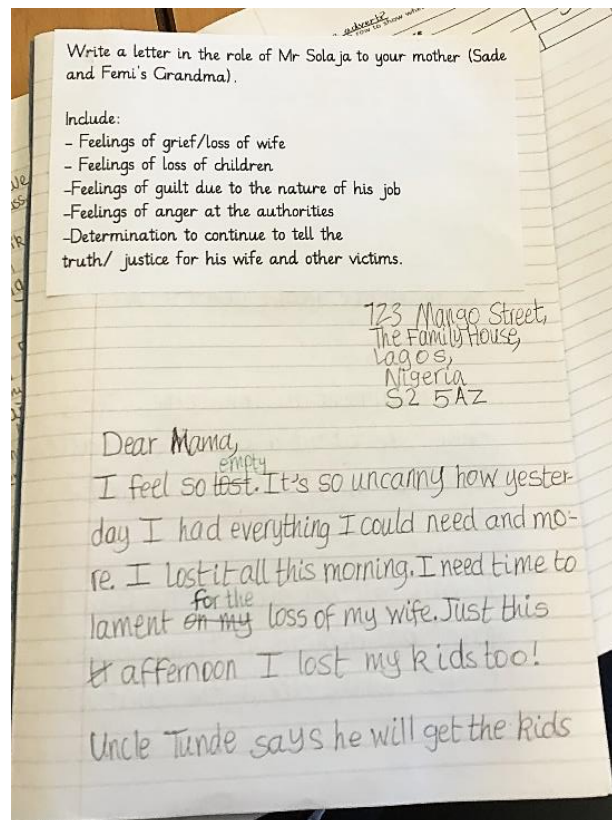 advert?
row to show wh
Write a letter in the role of Mr Solaja to your mother (Sade
and Femi's Grandma).
Include:
- Feelings of grief/loss of wife
- Feelings of loss of children
-Feelings of guilt due to the nature of his job
-Feelings of anger at the authorities
-Determination to continue to tell the
truth/ justice for his wife and other victims.
123 Mango Street,
The Family House,
Lagos,
Nigeria
S2 5AZ
Dear Mama,
empty
I feel so lost. It's so uncanny how yester-
day I had everything I could need and mo-
re. I lost it all this morning. I need time to
for the
lament on my loss of my wife. Just this
afternoon I lost my kids too!
Uncle Tunde says he will get the kids